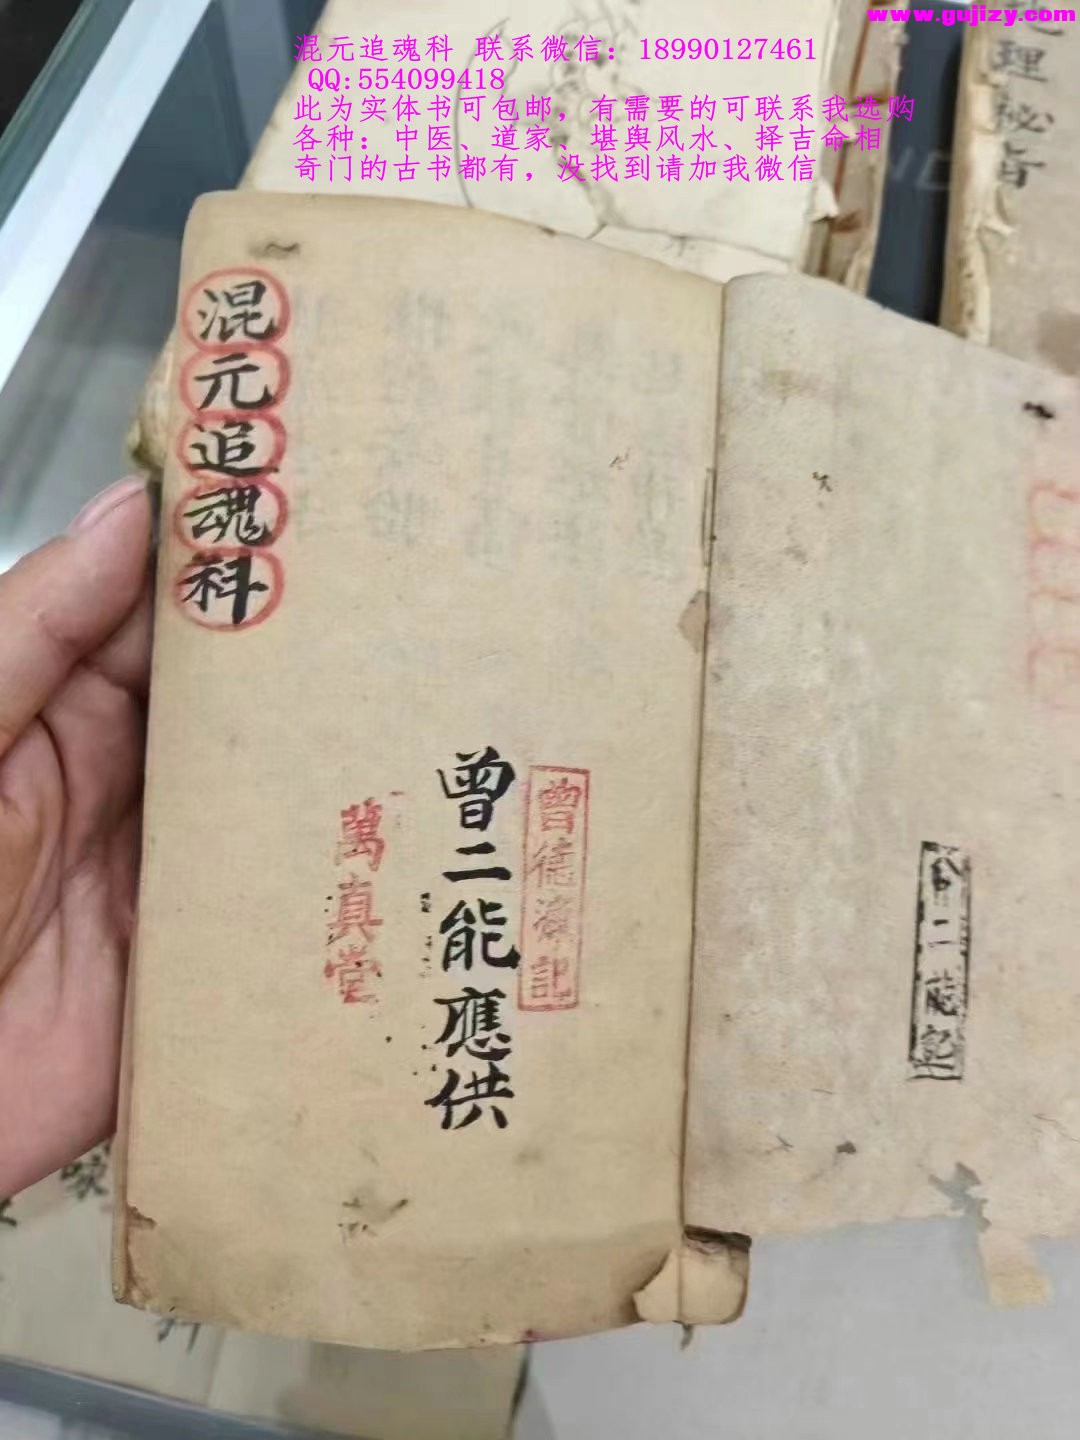 www.gujizy.com
混元追魂科 联系微信：18990127461
QQ:554099418
此为实体书可包邮，有需要的可联系我选购
各种：中医、道家、堪舆风水、择吉命相
奇门的古书都有，没找到请加我微信
理秘旨
混元追魂科
曾德濂記
曾二能應供
萬真堂
二能記